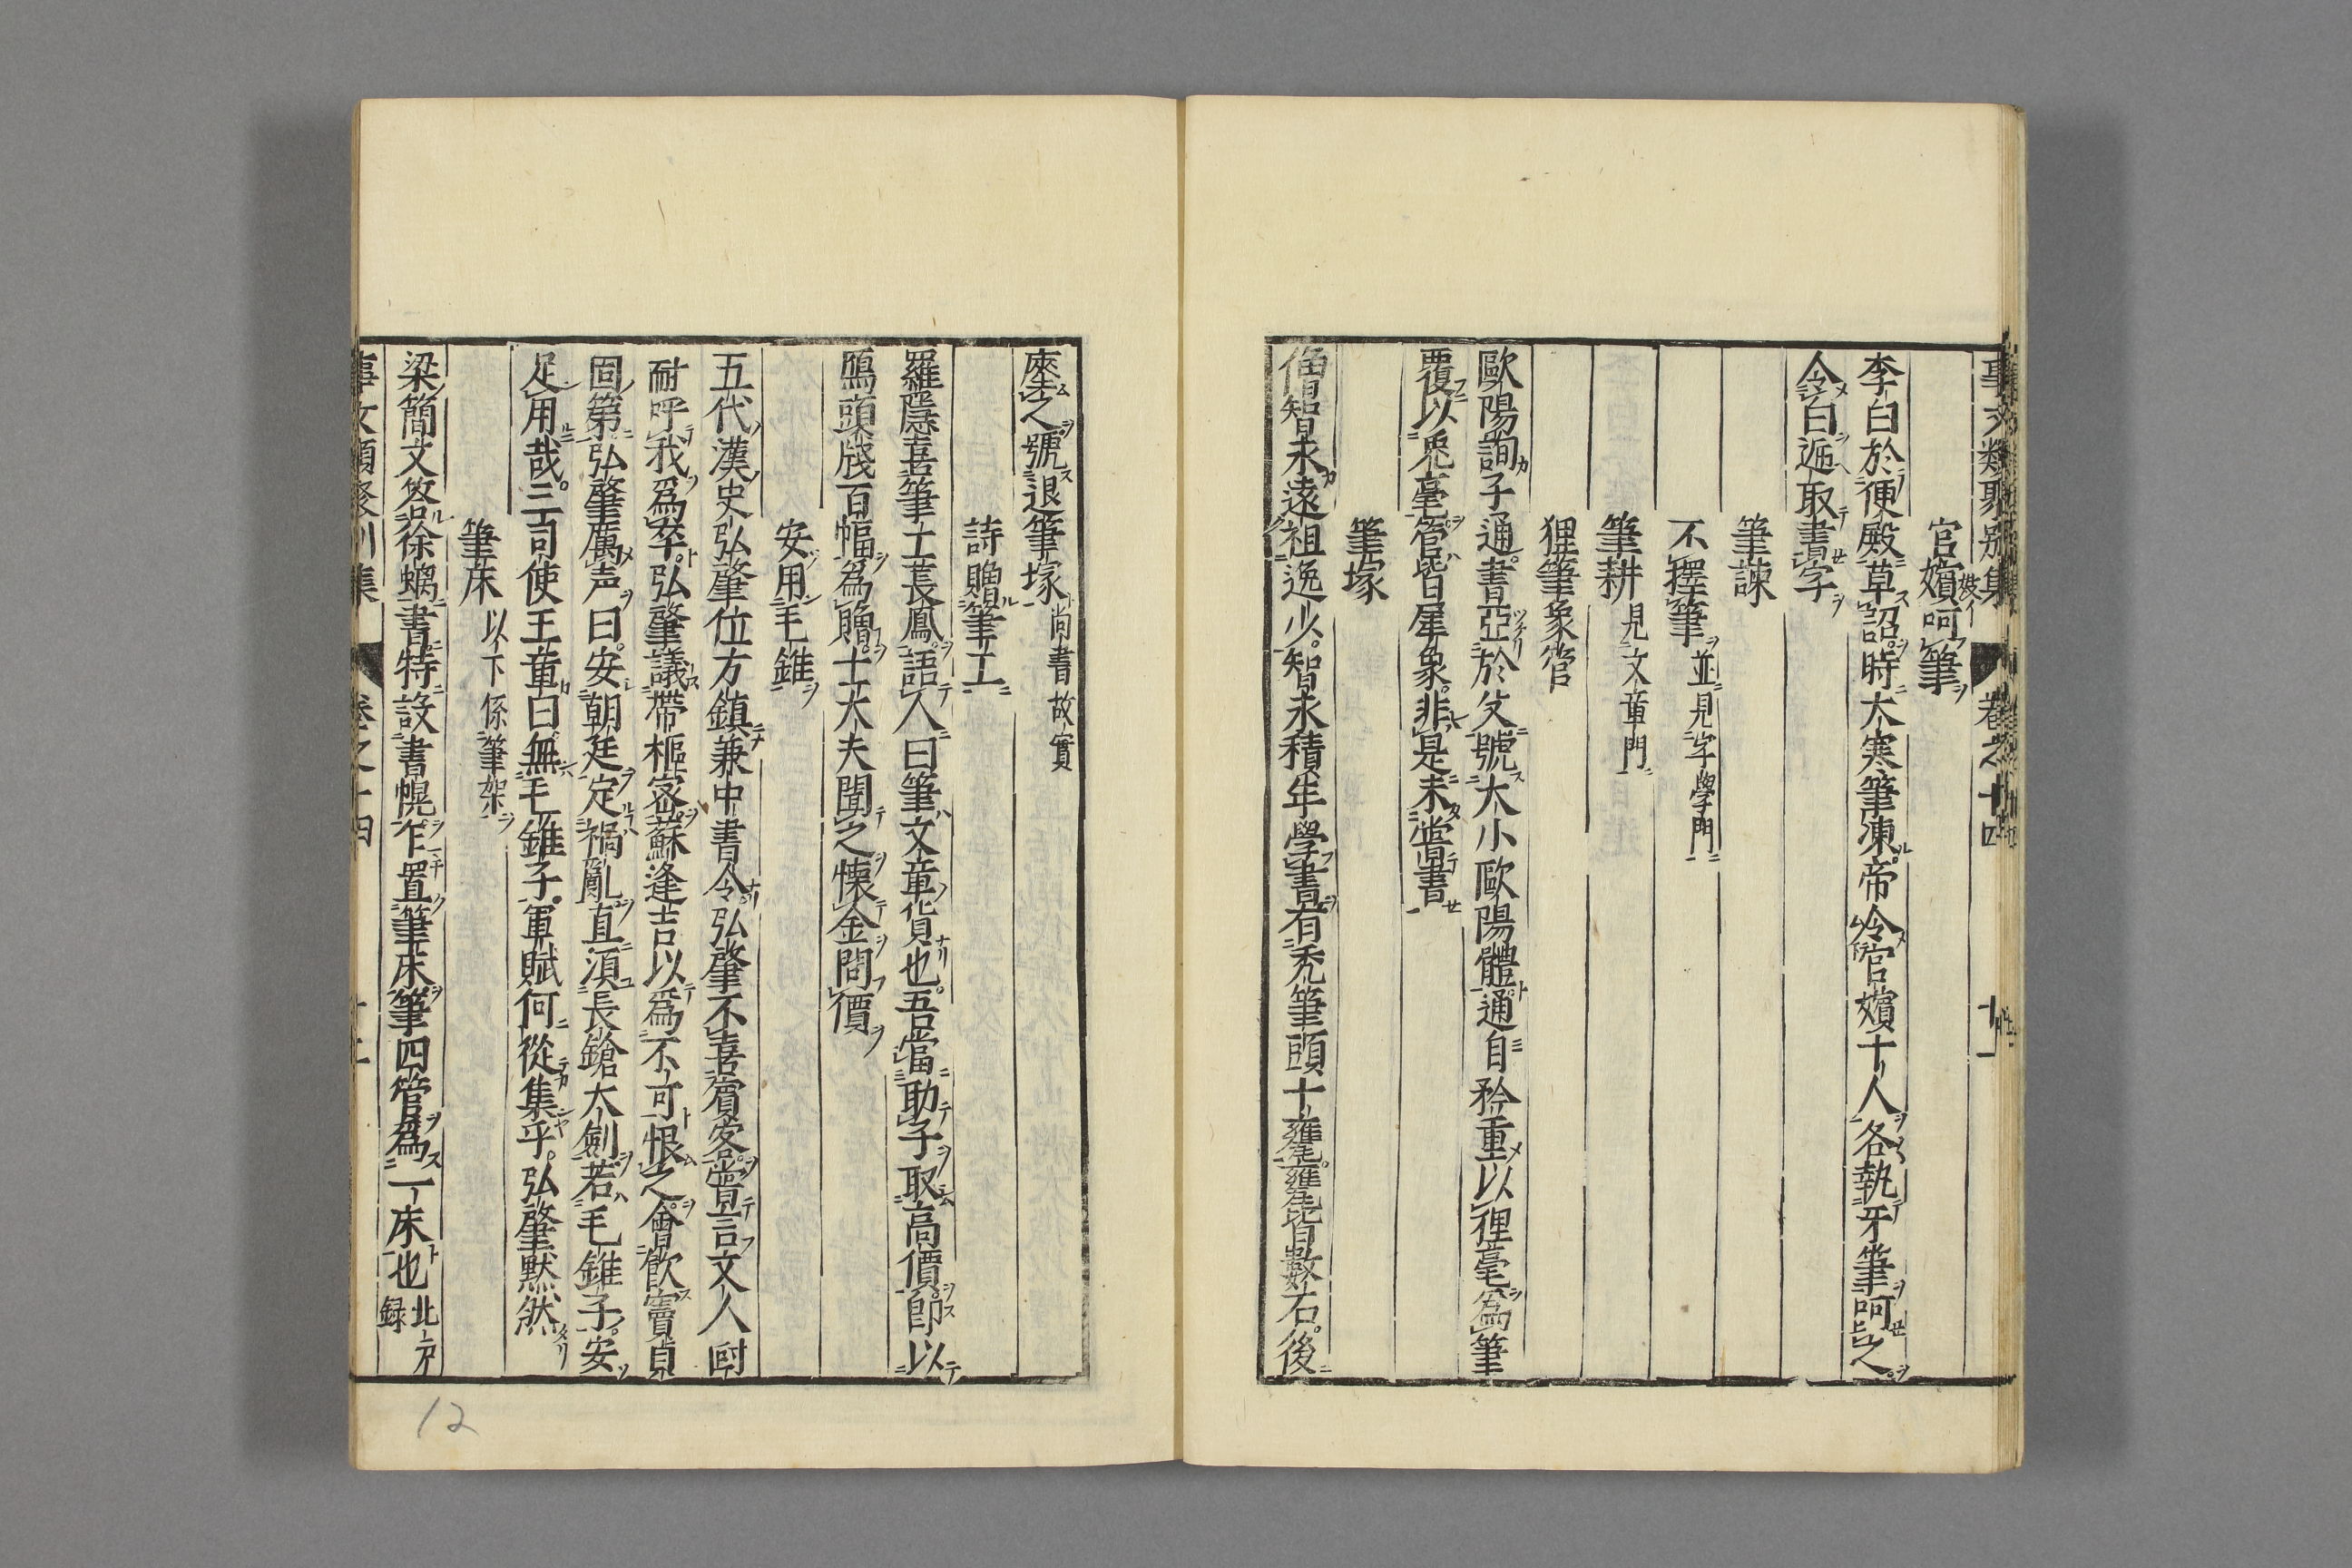 事文類聚別集 卷之十四 十一
官嬪呵筆
李白於便殿草詔時大寒筆凍帝令官嬪十人各執牙筆呵之
令白遞取書字
筆諫
不擇筆 並見字學門
筆耕 見文章門
狸筆象管
歐陽詢子通書亞於父號大小歐陽體通自矜重以狸毫爲筆
覆以兎毫管皆犀象非是未嘗書
筆塚
僧智永遠祖逸少智永積年學書有秃筆頭十甕甕皆數石後
瘞之號退筆塚 尚書故實
詩贈筆工
羅隱喜筆工萇鳳語人曰筆文章貨也吾當助子取高價即以
鴈頭牋百幅爲贈士大夫聞之懷金問價
安用毛錐
五代漢史弘肇位方鎮兼中書令弘肇不喜賓客嘗言文人
耐呼我爲卒弘肇議帶樞密蘇逢吉以爲不可恨之會飮竇貞
固第弘肇厲声曰安朝廷定禍亂直須長鎗大劍若毛錐子安
足用哉三司使王章曰無毛錐子軍賦何從集乎弘肇默然
筆床 以下係筆架
梁簡文答徐螭書特設書幌乍置筆床筆四管爲一床也 北户録
事文類聚別集 卷之十四
12